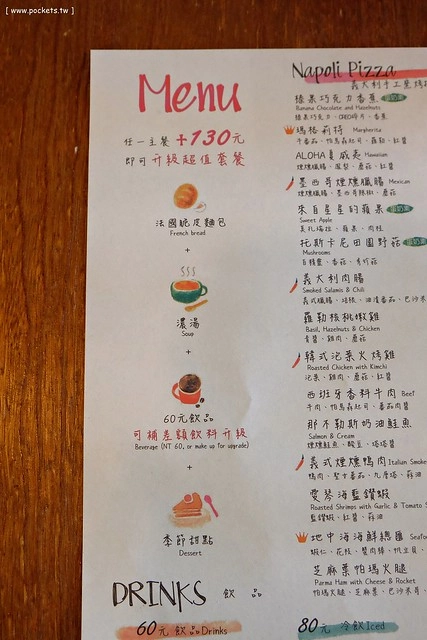 [ www.pockets.tw ]
Menu
任一主餐 +130元
即可升級超值套餐
法國脆皮麵包
French bread
+
濃湯
Soup
+
60元飲品
可補差額飲料升級
Beverage (NT 60, or make up for upgrade)
+
季節甜點
Dessert
DRINKS 飲品
60元 飲品Drinks
Napoli Pizza
義大利手工窯烤
榛果巧克力香蕉
Banana Chocolate and Hazelnuts
榛果巧克力、OREO碎片、香蕉
瑪格莉特 Margherita
牛番茄、帕馬森起司、羅勒、紅醬
ALOHA夏威夷 Hawaiian
煙燻臘腸、鳳梨、蘑菇、紅醬
墨西哥煙燻臘腸 Mexican
煙燻臘腸、墨西哥辣椒、蘑菇
來自星星的蘋果
Sweet Apple
莫札瑞拉、蘋果、肉桂
托斯卡尼田園野菇
Mushrooms
白精靈、香菇、秀珍菇
義大利肉腸
Smoked Salamis & Chili
義式臘腸、培根、油漬番茄、巴沙米
羅勒核桃嫩雞
Basil, Hazelnuts & Chicken
青醬、雞肉、蘑菇
韓式泡菜火烤雞
Roasted Chicken with Kimchi
泡菜、雞肉、蘑菇、紅醬
西班牙香料牛肉 Beef
牛肉、帕馬森起司、番茄肉醬
那不勒斯奶油鮭魚
Salmon & Cream
煙燻鮭魚、酸豆、塔塔醬
義式煙燻鴨肉 Italian Smoke
鴨肉、聖女番茄、九層塔、蒜油
愛琴海藍鑽蝦
Roasted Shrimps with Garlic & Tomato S
藍鑽蝦、紅醬、蒜油
地中海海鮮總匯 Seafo
蝦仁、花枝、蟹肉棒、帆立貝、
芝麻葉帕瑪火腿
Parma Ham with Cheese & Rocket
帕瑪火腿、芝麻葉、巴沙米哥、
80元 冷飲Iced